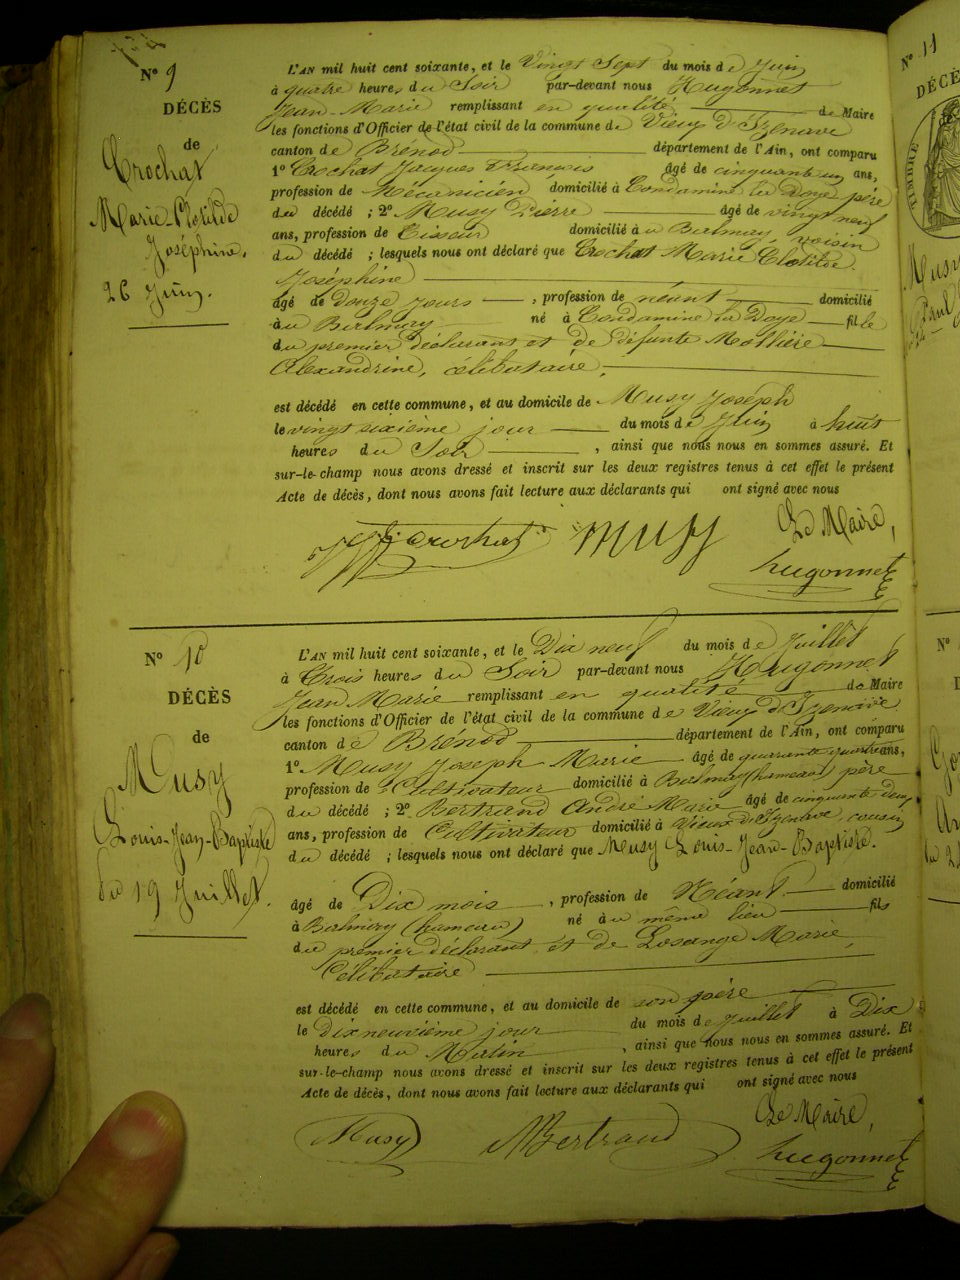 N° 9
DÉCÈS
de
Crochat
Marie-Clotilde
Joséphine.
26 Juin.
L'AN mil huit cent soixante, et le Vingt Sept du mois de Juin
à quatre heures du Soir par-devant nous Hugonnet
Jean-Marie remplissant en qualité de Maire
les fonctions d'Officier de l'état civil de la commune de Vieux d'Izenave
canton de Brénod département de l'Ain, ont comparu
1° Crochat Jacques François âgé de cinquante un ans,
profession de Mécanicien domicilié à Condamine la Doye père
du décédé ; 2° Musy Pierre âgé de vingt neuf
ans, profession de Tisseur domicilié à u Balmay, voisin
du décédé ; lesquels nous ont déclaré que Crochat Marie Clotilde
Joséphine
âgé de douze jours , profession de néant domicilié
à u Balmay né à Condamine la Doye fille
du premier déclarant et de défunte Mollière
Alexandrine, célibataire,
est décédé en cette commune, et au domicile de Musy Joseph
le vingt sixième jour du mois de Juin à huit
heures du Soir , ainsi que nous nous en sommes assuré. Et
sur-le-champ nous avons dressé et inscrit sur les deux registres tenus à cet effet le présent
Acte de décès, dont nous avons fait lecture aux déclarants qui ont signé avec nous
Le Maire,
Crochat musy hugonnet
N° 10
DÉCÈS
de
Musy
Louis-Jean-Baptiste
du 19 Juillet.
L'AN mil huit cent soixante, et le Dix neuf du mois de Juillet
à Trois heures du Soir par-devant nous Hugonnet
Jean Marie remplissant en qualité de Maire
les fonctions d'Officier de l'état civil de la commune de Vieux d'Izenave
canton de Brénod département de l'Ain, ont comparu
1° Musy Joseph Marie âgé de quarante quatre ans,
profession de Cultivateur domicilié à Balmay (hameau) père
du décédé ; 2° Bertrand André Marie âgé de cinquante deux
ans, profession de Cultivateur domicilié à Vieux d'Izenave, cousin
du décédé ; lesquels nous ont déclaré que Musy Louis-Jean-Baptiste.
âgé de Dix mois , profession de Néant domicilié
à Balmay (hameau) né à u même lieu fils
du premier déclarant et de Losange Marie,
Célibataire
est décédé en cette commune, et au domicile de son père
le dix neuvième jour du mois de Juillet à Dix
heures du Matin , ainsi que nous nous en sommes assuré. Et
sur-le-champ nous avons dressé et inscrit sur les deux registres tenus à cet effet le présent
Acte de décès, dont nous avons fait lecture aux déclarants qui ont signé avec nous
Le Maire,
Musy Bertrand hugonnet
N° 11
DÉCÈS
TIMBRE
Musy
Paul
N°